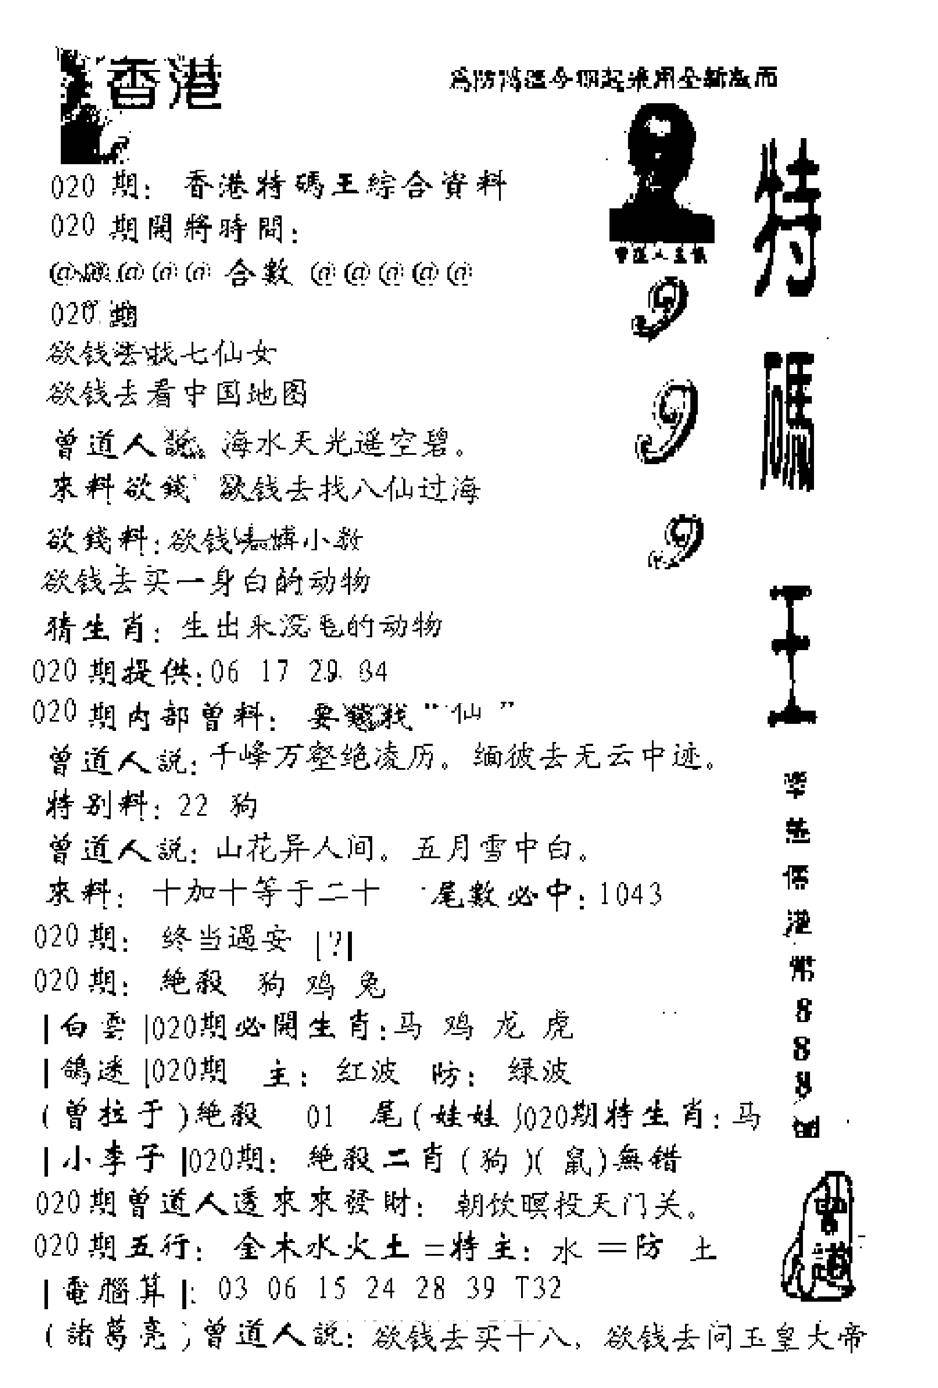 香港
020 期: 香港特碼王綜合資料
020 期開將時間:
合數 @ @ @ @ @
020 期
欲钱去找七仙女
欲钱去看中国地图
曾道人說: 海水天光遥空碧。
來料欲錢 欲钱去找八仙过海
欲錢料: 欲钱 小数
欲钱去买一身白的动物
猜生肖: 生出来没毛的动物
020 期提供: 06 17 29 34
020 期内部曾料: 要 找“仙”
曾道人説: 千峰万壑绝凌历。缅彼去无云中迹。
特别料: 22 狗
曾道人説: 山花异人间。五月雪中白。
來料: 十加十等于二十 尾數必中: 1043
020 期: 终当遇安 |?|
020 期: 絶殺 狗 鸡 兔
|白雲|020期必開生肖: 马 鸡 龙 虎
|鴿迷|020期 主: 红波 防: 绿波
(曾拉于)絶殺 01 尾(娃娃)020期特生肖: 马
|小李子|020期: 絶殺二肖(狗)(鼠)無错
020期曾道人透來來發財: 朝饮暝投天门关。
020期五行: 金木水火土=特主: 水=防 土
|電腦算|: 03 06 15 24 28 39 T32
(諸葛亮)曾道人説: 欲钱去买十八, 欲钱去问玉皇大帝
9
9
9
特碼王
港幣888
曾道